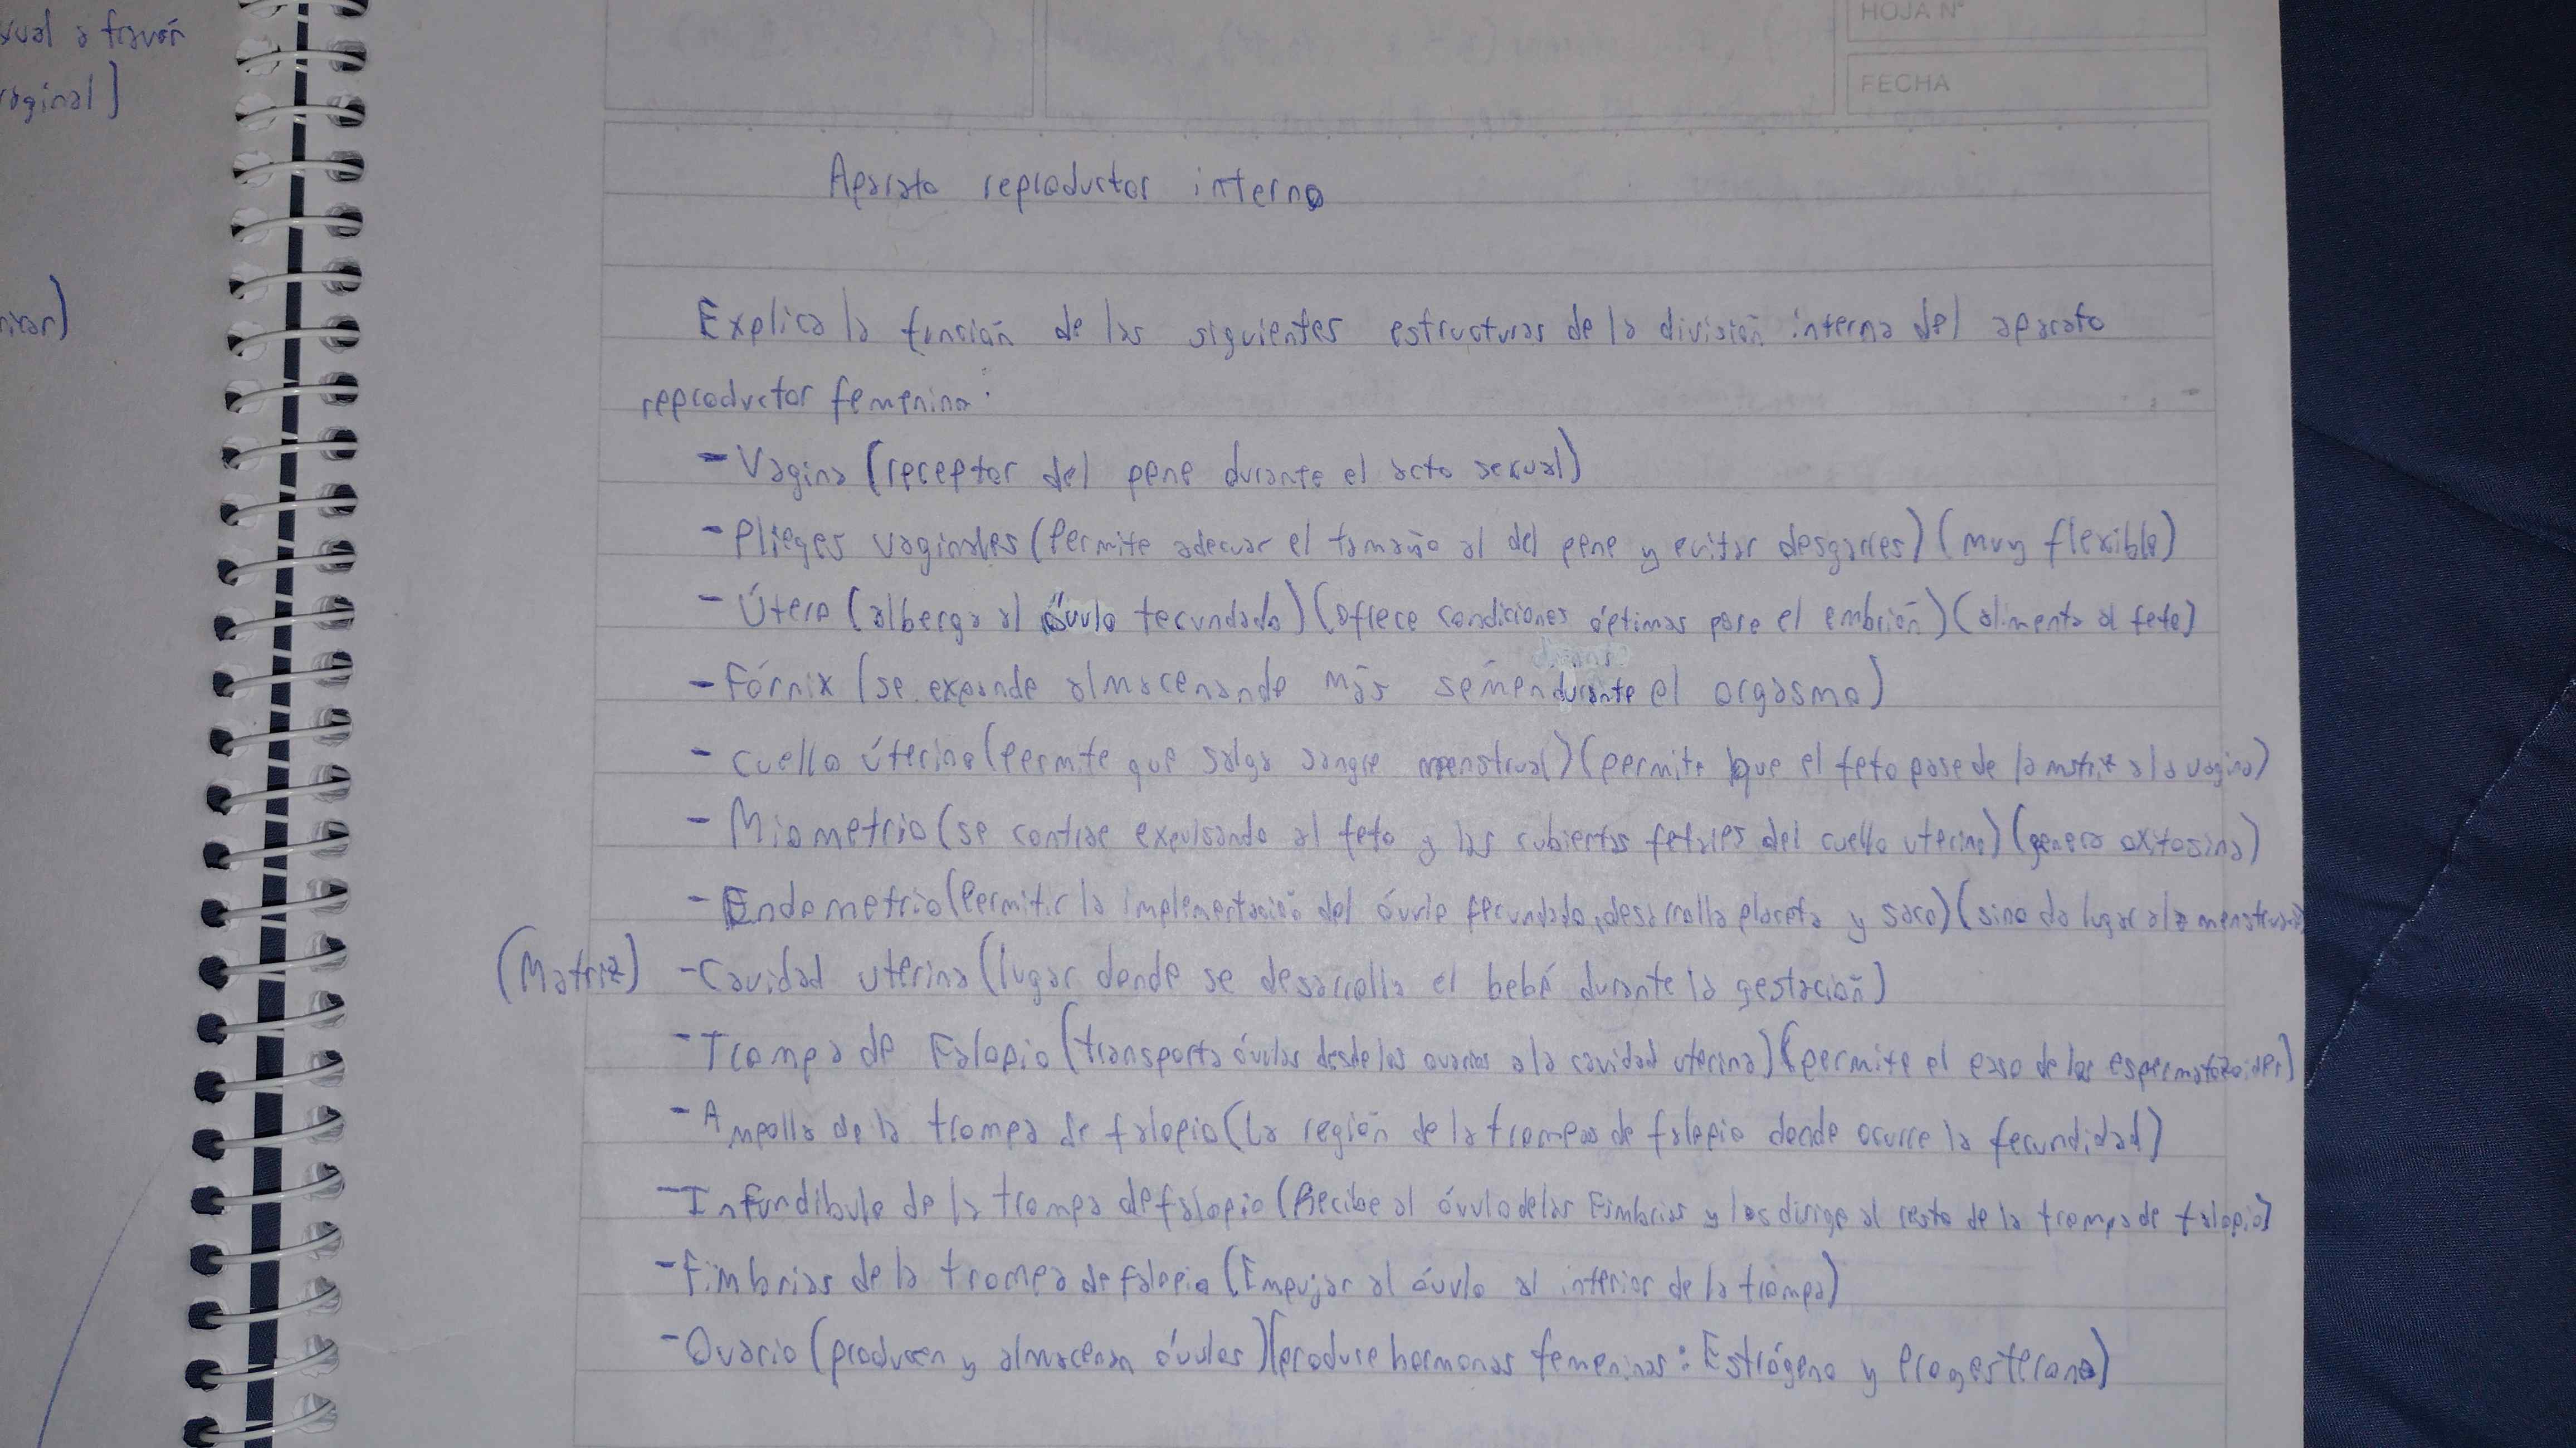 xual a través
vaginal)
HOJA N°
FECHA
Aparato reproductor interno
Explica la función de las siguientes estructuras de la división interna del aparato
reproductor femenino:
- Vagina (receptor del pene durante el acto sexual)
- Plieges vaginales (Permite adecuar el tamaño al del pene y evitar desgarres) (muy flexible)
- Útero (alberga al óvulo fecundado) (ofrece condiciones óptimas para el embrión) (alimenta al feto)
- Fórnix (se expande almacenando más semen durante el orgasmo)
- Cuello úterino (Permite que salga sangre menstrual) (permite que el feto pase de la matriz a la vagina)
- Miometrio (se contrae expulsando al feto y las cubiertas fetales del cuello uterino) (genera oxitosina)
- Endometrio (Permitir la implementación del óvulo fecundado, desarrolla placeta y saco) (sino da lugar a la menstruación)
(Matriz) - Cavidad uterina (lugar donde se desarrolla el bebé durante la gestación)
- Trompa de Falopio (transporta óvulos desde los ovarios a la cavidad uterina) (permite el paso de los espermatozoides)
- Ampolla de la trompa de falopio (La región de la trompas de falopio donde ocurre la fecundidad)
- Infundibulo de la trompa de falopio (Recibe al óvulo de las Fimbrias y los dirige al resto de la trompa de falopio)
- Fimbrias de la trompa de falopio (Empujar al óvulo al interior de la trompa)
- Ovario (producen y almacenan óvulos) (produse hormonas femeninas: Estrógeno y Progesterona)